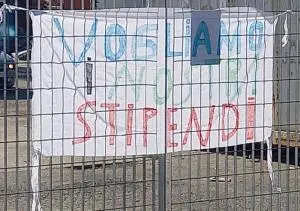 VOGLIAMO
I NOSTRI
STIPENDI